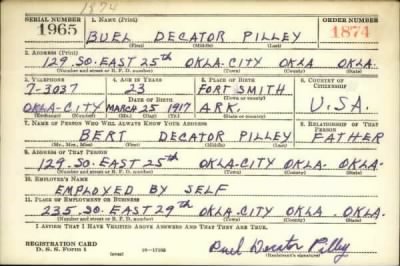 1874
SERIAL NUMBER 1. NAME (Print) ORDER NUMBER
1965 BUEL DECATOR PILLEY 1874
(First) (Middle) (Last)
2. ADDRESS (Print)
129 SO. EAST 25th OKLA. CITY OKLA OKLA.
(Number and street or R. F. D. number) (Town) (County) (State)
3. TELEPHONE 4. AGE IN YEARS 5. PLACE OF BIRTH 6. COUNTRY OF CITIZENSHIP
7-3037 23 FORT SMITH
DATE OF BIRTH (Town or county)
OKLA-CITY MARCH 25 1917 ARK. U.S.A.
(Exchange) (Number) (Mo.) (Day) (Yr.) (State or country)
7. NAME OF PERSON WHO WILL ALWAYS KNOW YOUR ADDRESS 8. RELATIONSHIP OF THAT PERSON
BERT DECATOR PILLEY FATHER
(Mr., Mrs., Miss) (First) (Middle) (Last)
9. ADDRESS OF THAT PERSON
129 SO. EAST 25th OKLA-CITY OKLA. OKLA-
(Number and street or R. F. D. number) (Town) (County) (State)
10. EMPLOYER'S NAME
EMPLOYED BY SELF
11. PLACE OF EMPLOYMENT OR BUSINESS
235 SO. EAST 29th OKLA-CITY OKLA. OKLA.
(Number and street or R. F. D. number) (Town) (County) (State)
I AFFIRM THAT I HAVE VERIFIED ABOVE ANSWERS AND THAT THEY ARE TRUE.
REGISTRATION CARD
D. S. S. FORM 1 (over) Buel Decator Pilley
(Registrant's signature)